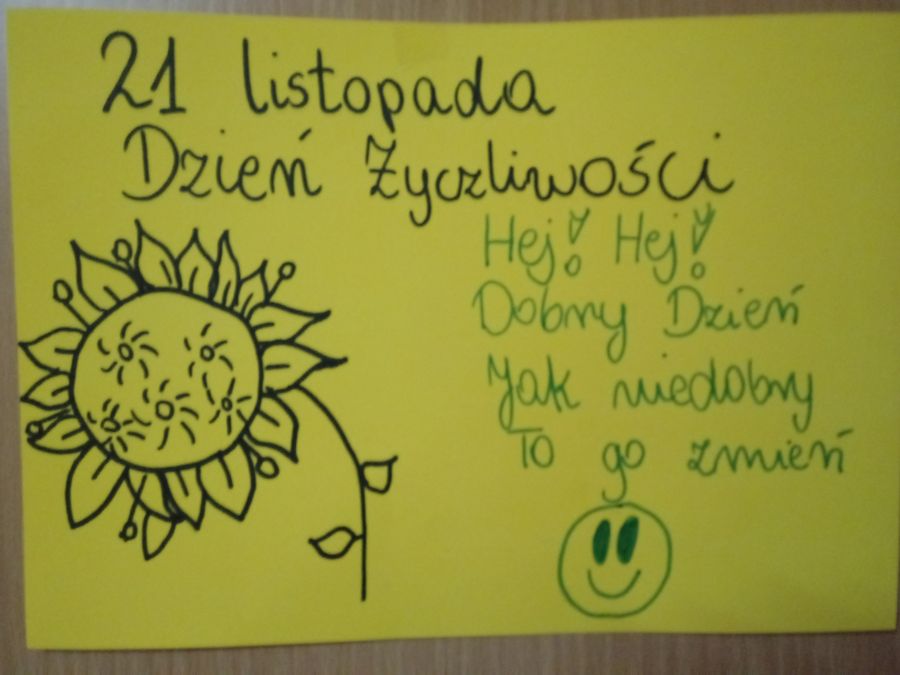 21 listopada
Dzień Życzliwości
Hej! Hej!
Dobry Dzień
Jak niedobry
To go zmień